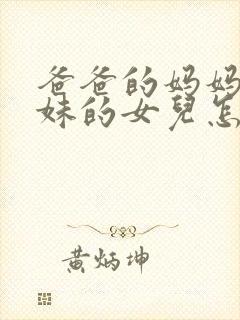 爸爸的妈妈
妹的女兒怎
黄炳坤